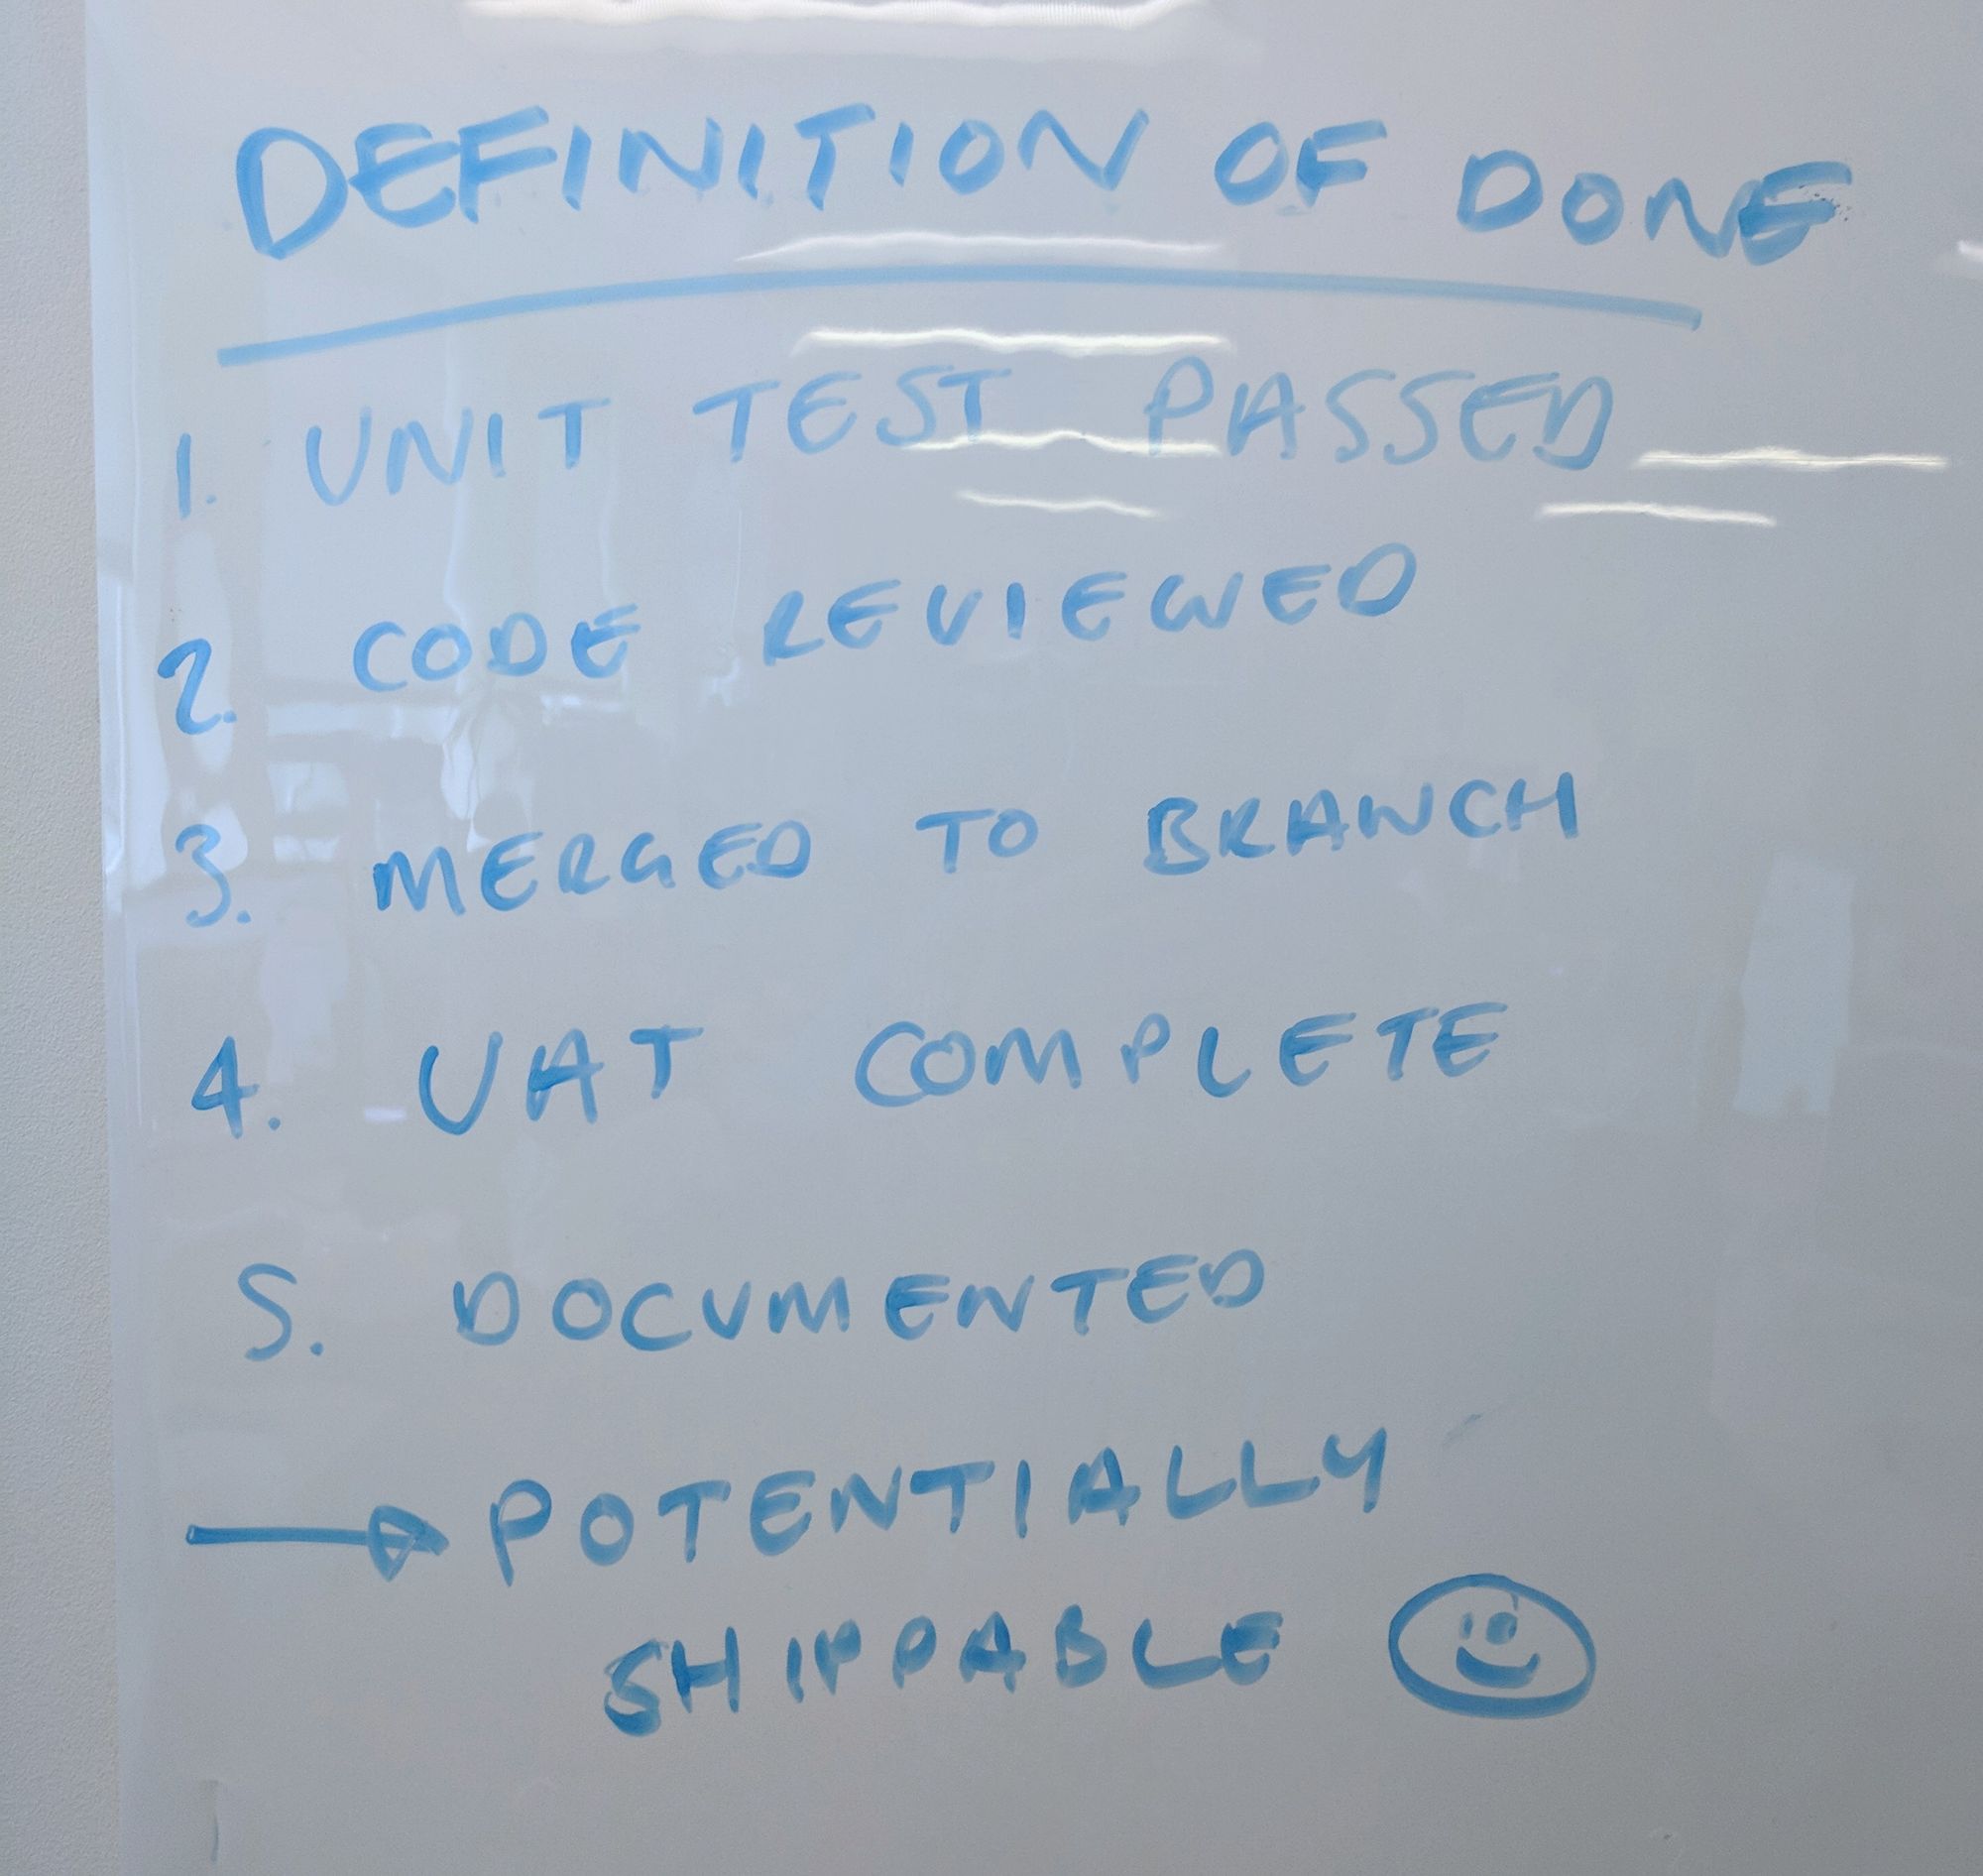 DEFINITION OF DONE
1. UNIT TEST PASSED
2. CODE REVIEWED
3. MERGED TO BRANCH
4. UAT COMPLETE
5. DOCUMENTED
POTENTIALLY
SHIPPABLE